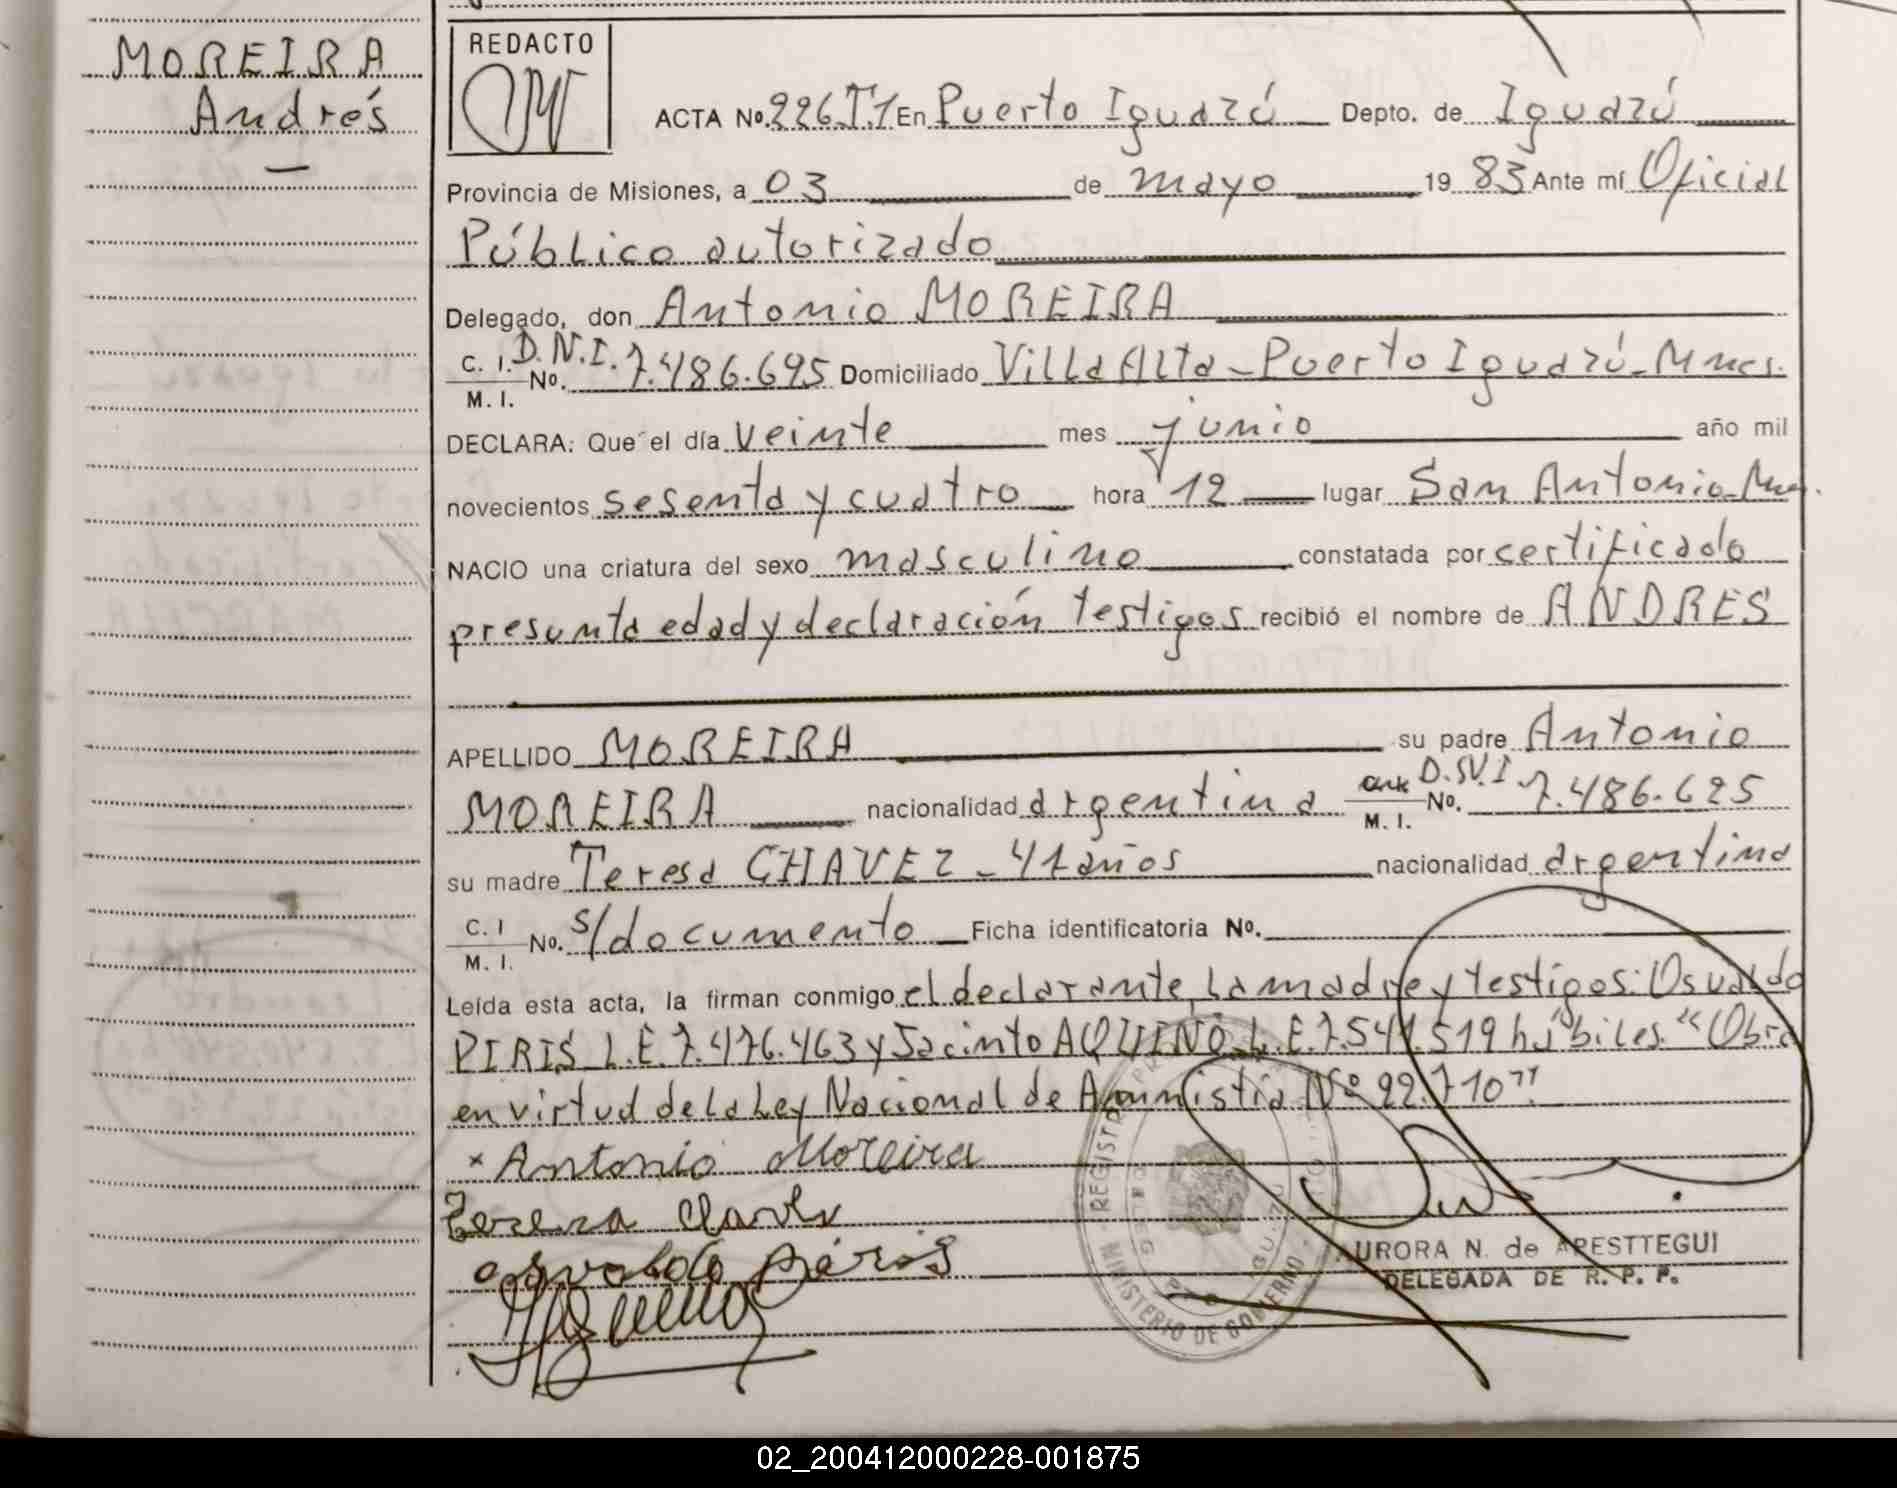 MOREIRA
Andrés
REDACTO
ACTA No. 226 T1 En Puerto Iguazú Depto. de Iguazú
Provincia de Misiones, a 03 de mayo 1983 Ante mí Oficial
Público autorizado
Delegado, don Antonio MOREIRA
C. I. D.N.I. No. 7.486.695 Domiciliado Villa Alta - Puerto Iguazú - Mnes.
M. I.
DECLARA: Que el día veinte mes junio año mil
novecientos sesenta y cuatro hora 12 lugar San Antonio - Mnes.
NACIO una criatura del sexo masculino constatada por certificado
presunta edad y declaración testigos recibió el nombre de ANDRES
APELLIDO MOREIRA su padre Antonio
MOREIRA nacionalidad argentina D.N.I. No. 7.486.695
M. I.
su madre Teresa CHAVEZ - 41 años nacionalidad argentina
C. I No. s/documento Ficha identificatoria No.
M. I.
Leída esta acta, la firman conmigo el declarante, la madre y testigos: Osvaldo
PIRIS L.E. 7.476.463 y Jacinto AQUINO L.E. 7.541.519 hábiles. "Obra
en virtud de la Ley Nacional de Amnistía Nº 22.710".
x Antonio Moreira
REGISTR
MINISTERIO DE GOBIERNO
AURORA N. de ARESTTEGUI
DELEGADA DE R. P. P.
02_200412000228-001875